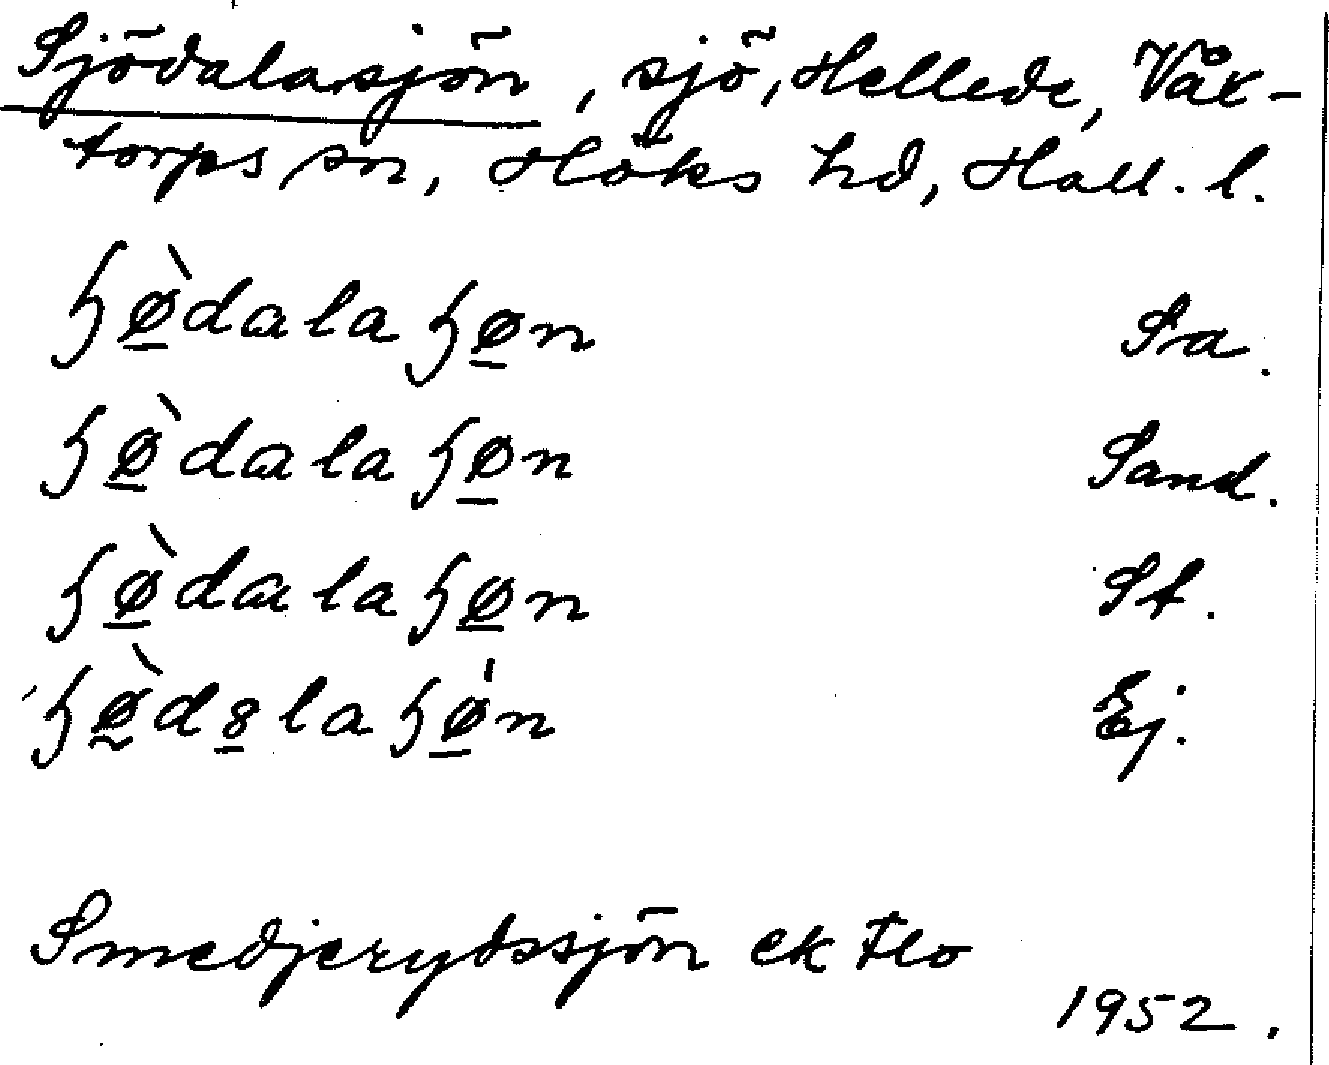 Sjödalasjön, sjö, Hellede, Våx-
torps sn, Höks hd, Hall. l.
ɧø̲̀dalaɧø̲n Sa.
ɧø̲̀dalaɧø̲n Sand.
ɧø̲̀dalaɧø̲n St.
ɧø̰̀d8̲laɧǿ̲n Ej.
Smedjerydssjön ek Flo
1952.